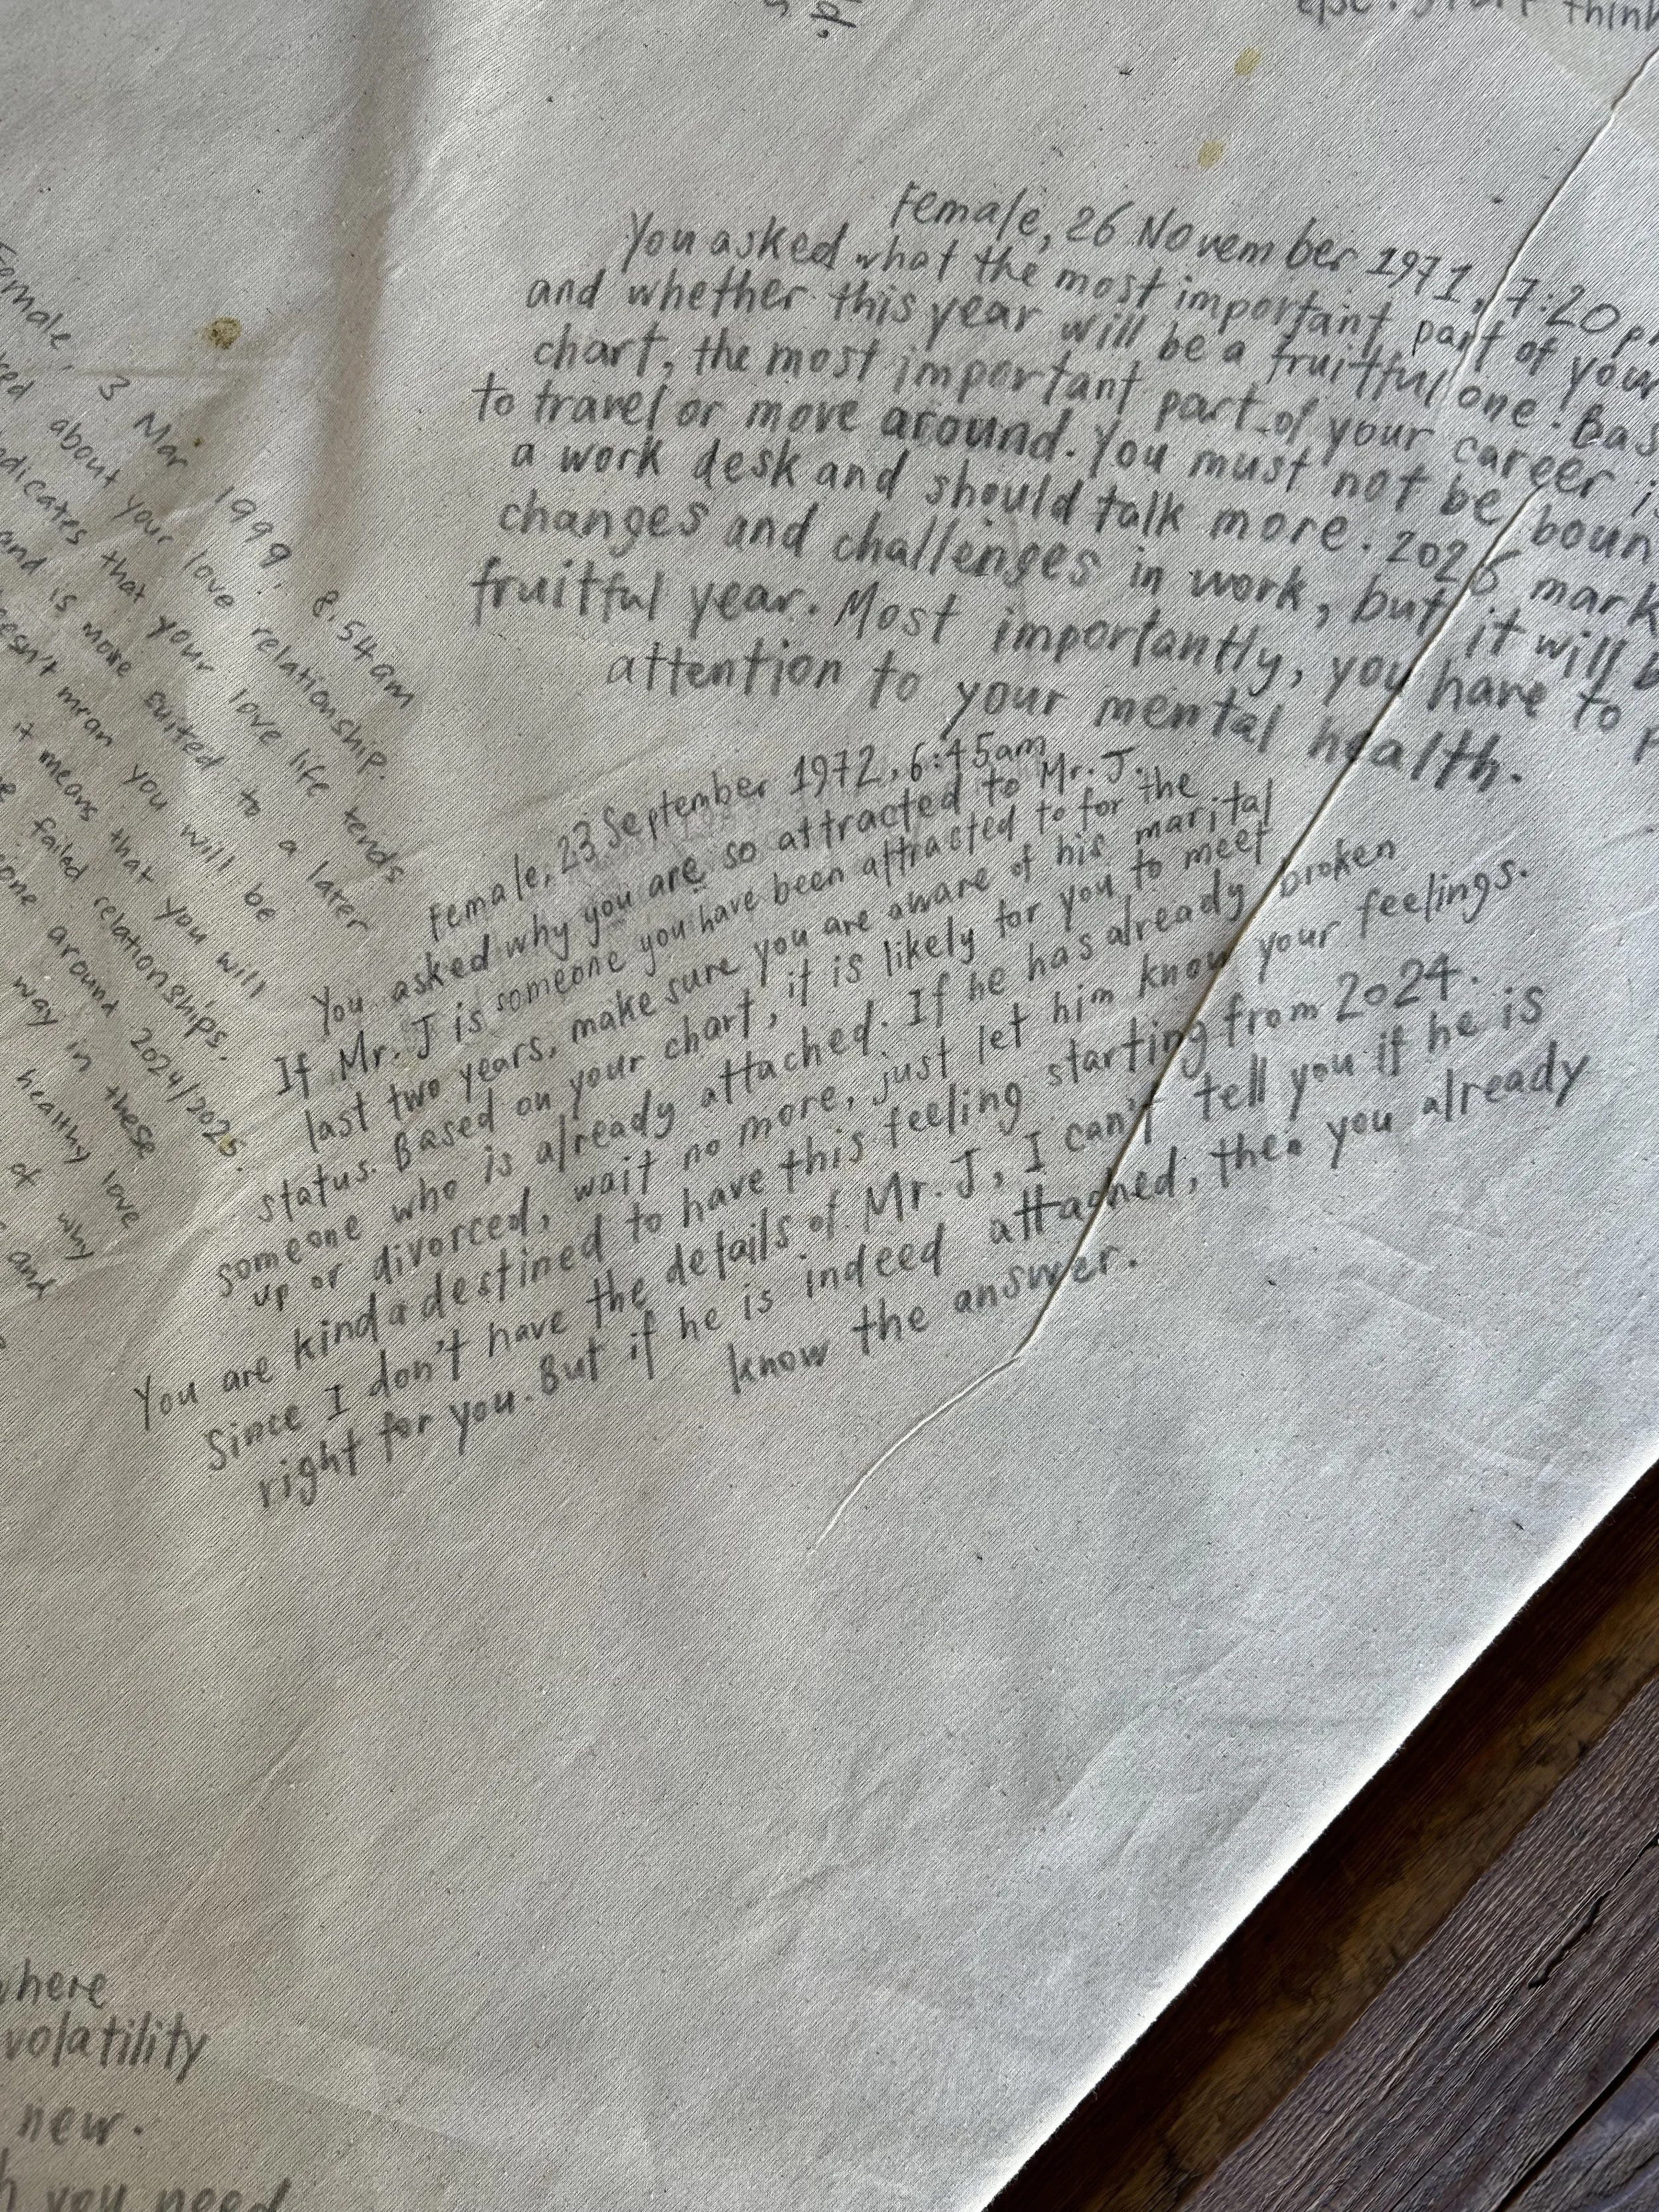 think
Female, 3 Mar 1999, 8.54am
about your love relationship.
that your love life tends
and is more suited to a later
mean you will be
it means that you will
failed relationships.
around 2024/2025.
way in these
healthy love
of why
and
Female, 26 November 1971, 7:20
You asked what the most important part of your
and whether this year will be a fruitful one.
chart, the most important part of your career
to travel or move around. You must not be
a work desk and should talk more.
changes and challenges in work, but it will
fruitful year. Most importantly, you have to
attention to your mental health.
Female, 23 September 1972, 6:45am
You asked why you are so attracted to Mr. J.
If Mr. J is someone you have been attracted to for the
last two years, make sure you are aware of his marital
status. Based on your chart, it is likely for you to meet
someone who is already attached. If he has already broken
up or divorced, wait no more, just let him know your feelings.
You are kinda destined to have this feeling starting from 2024.
Since I don't have the details of Mr. J, I can't tell you if he is
right for you. But if he is indeed attached, then you already
know the answer.
where
volatility
new.
you need